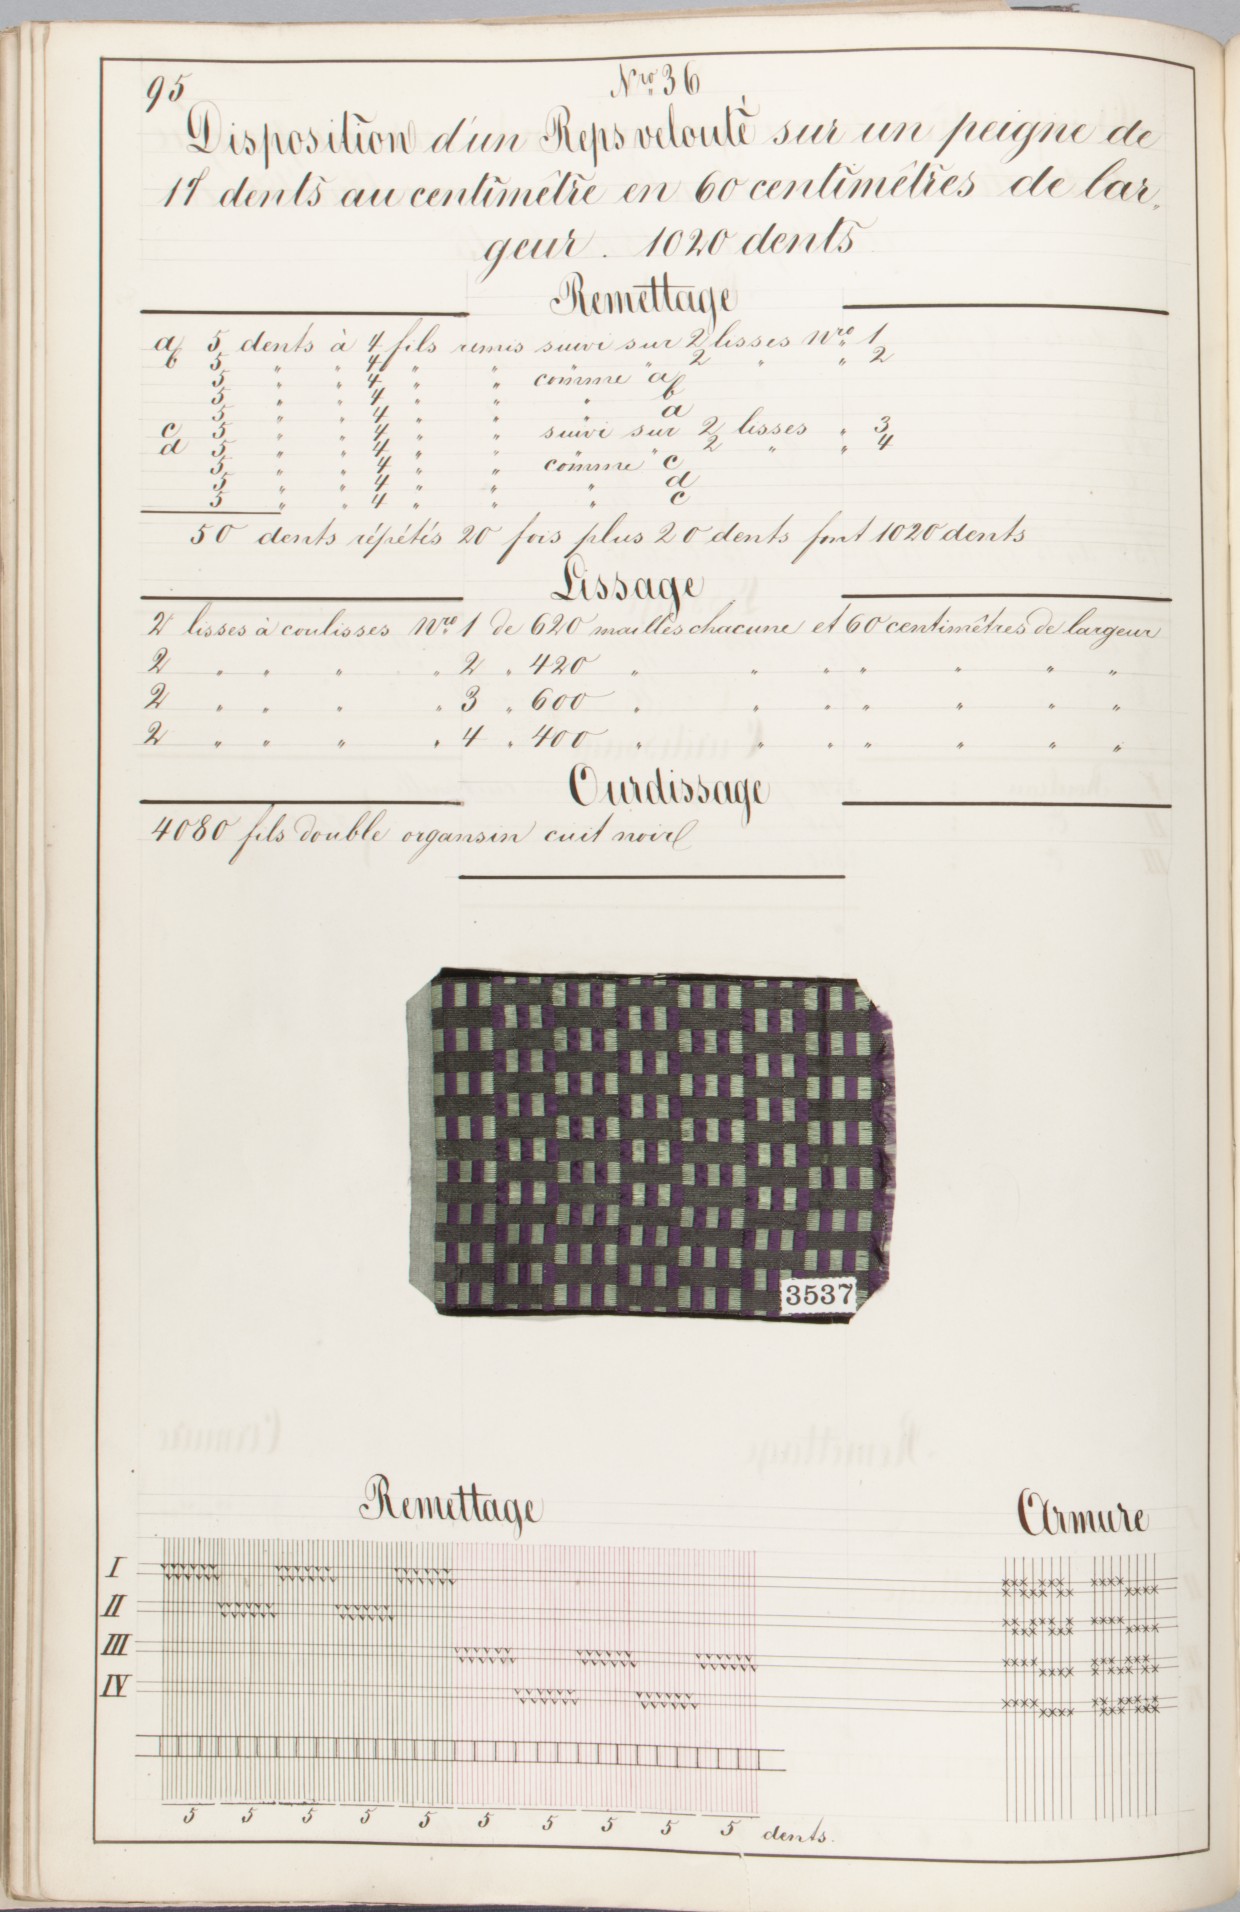 95
Nro. 36
Disposition d'un Reps velouté sur un peigne de
17 dents au centimêtre en 60 centimêtres de lar,
geur. 1020 dents
Remettage
a 5 dents à 4 fils remis suivi sur 2 lisses Nro. 1
b 5 " " 4 " " " 2 " " 2
5 " " 4 " " comme a
5 " " 4 " " " b
5 " " 4 " " " a
c 5 " " 4 " " suivi sur 2 lisses " 3
d 5 " " 4 " " " 2 " " 4
5 " " 4 " " comme c
5 " " 4 " " " d
5 " " 4 " " " c
50 dents répétés 20 fois plus 20 dents font 1020 dents
Lissage
2 lisses à coulisses Nro. 1 de 620 mailles chacune et 60 centimêtres de largeur
2 " " " " 2 " 420 " " " " " " "
2 " " " " 3 " 600 " " " " " " "
2 " " " " 4 " 400 " " " " " " "
Ourdissage
4080 fils double organsin cuit noir
3537
Remettage
Armure
I
II
III
IV
5 5 5 5 5 5 5 5 5 5 dents.